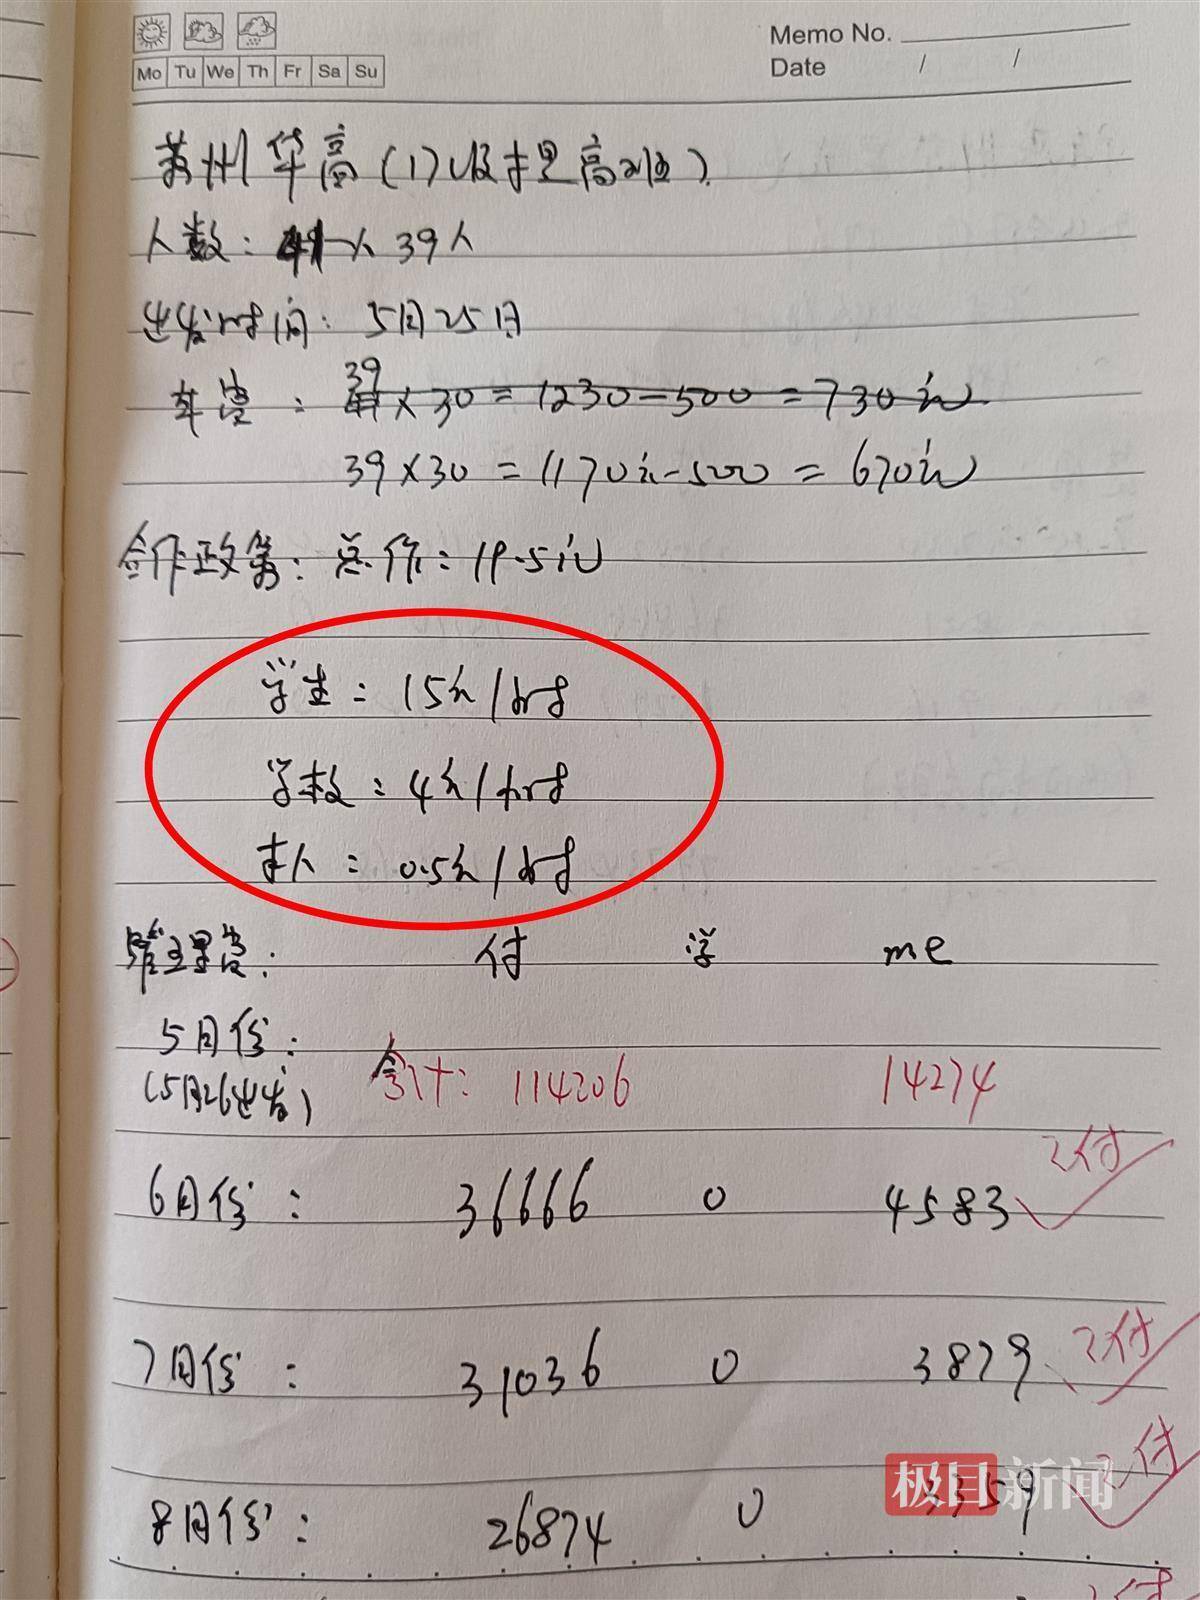 Memo No.
Mo Tu We Th Fr Sa Su
Date / /
苏州华高(1)
人数: 39人
出发时间: 5月25日
车费: 39×30=1230-500=730元
39×30=1170元-500=670元
合作政策: 总价: 19.5元
学生: 15元/时
学校: 4元/时
本人: 0.5元/时
管理费: 付 学 me
5月份:
(5月26出发) 合计: 114206 14274
6月份: 36666 0 4583 已付
7月份: 31036 0 3879 已付
8月份: 26874 0 3359 已付
极目新闻